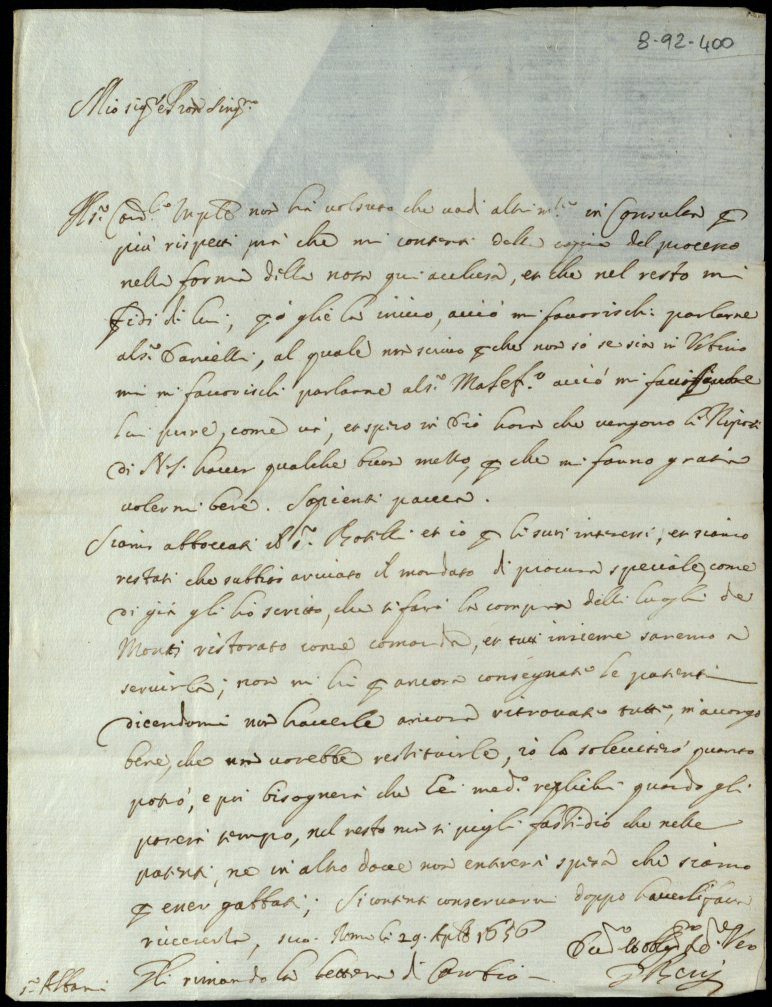 8-92-400
Mio sig.re e Pron Sing.mo
Il s.r Card.le non hà volsuto che vadi altrim.te in Consulta p
più rispetti mà che mi contenti della copia del processo
nella forma della nota qui acclusa, et che nel resto mi
fidi di lui, però gliè la invio, acciò mi favorischi parlarne
al s.r Danielli, al quale non scrivo p che non sò se sia in Urbino
mi favorischi parlarne al s.r acciò mi
lui pure, come và, et spero in Dio hora che vengono li Nipoti
di N.S. haver qualche buon p che mi fanno gratia
volermi bene. Sapienti pauca.
Siamo abboccati il s.r et io p li suoi interessi, et siamo
restati che subbito arrivato il mandato di procura speciale, come
di già gli hò scritto, che si farà la compra delli luoghi de
Monti ristorato come comanda, et tutti insieme saremo a
servirla; non mi hà p ancora consegnate le patenti
dicendomi non haverle ancora ritrovate tutte, m'accorgo
bene, che non vorebbe restituirle, io la solecitarò quanto
potrò, e poi bisognerà che lei med.o replichi quando gli
parerà tempo, nel resto non si pigli fastidio che nelle
patenti, ne in altro dove non entrerà spesa che siamo
p esser gabbati; Si contenti conservarmi doppo haverli
riverirla, Roma li 29 Aple 1656
Gli rimando la lettera di
s.r Albani